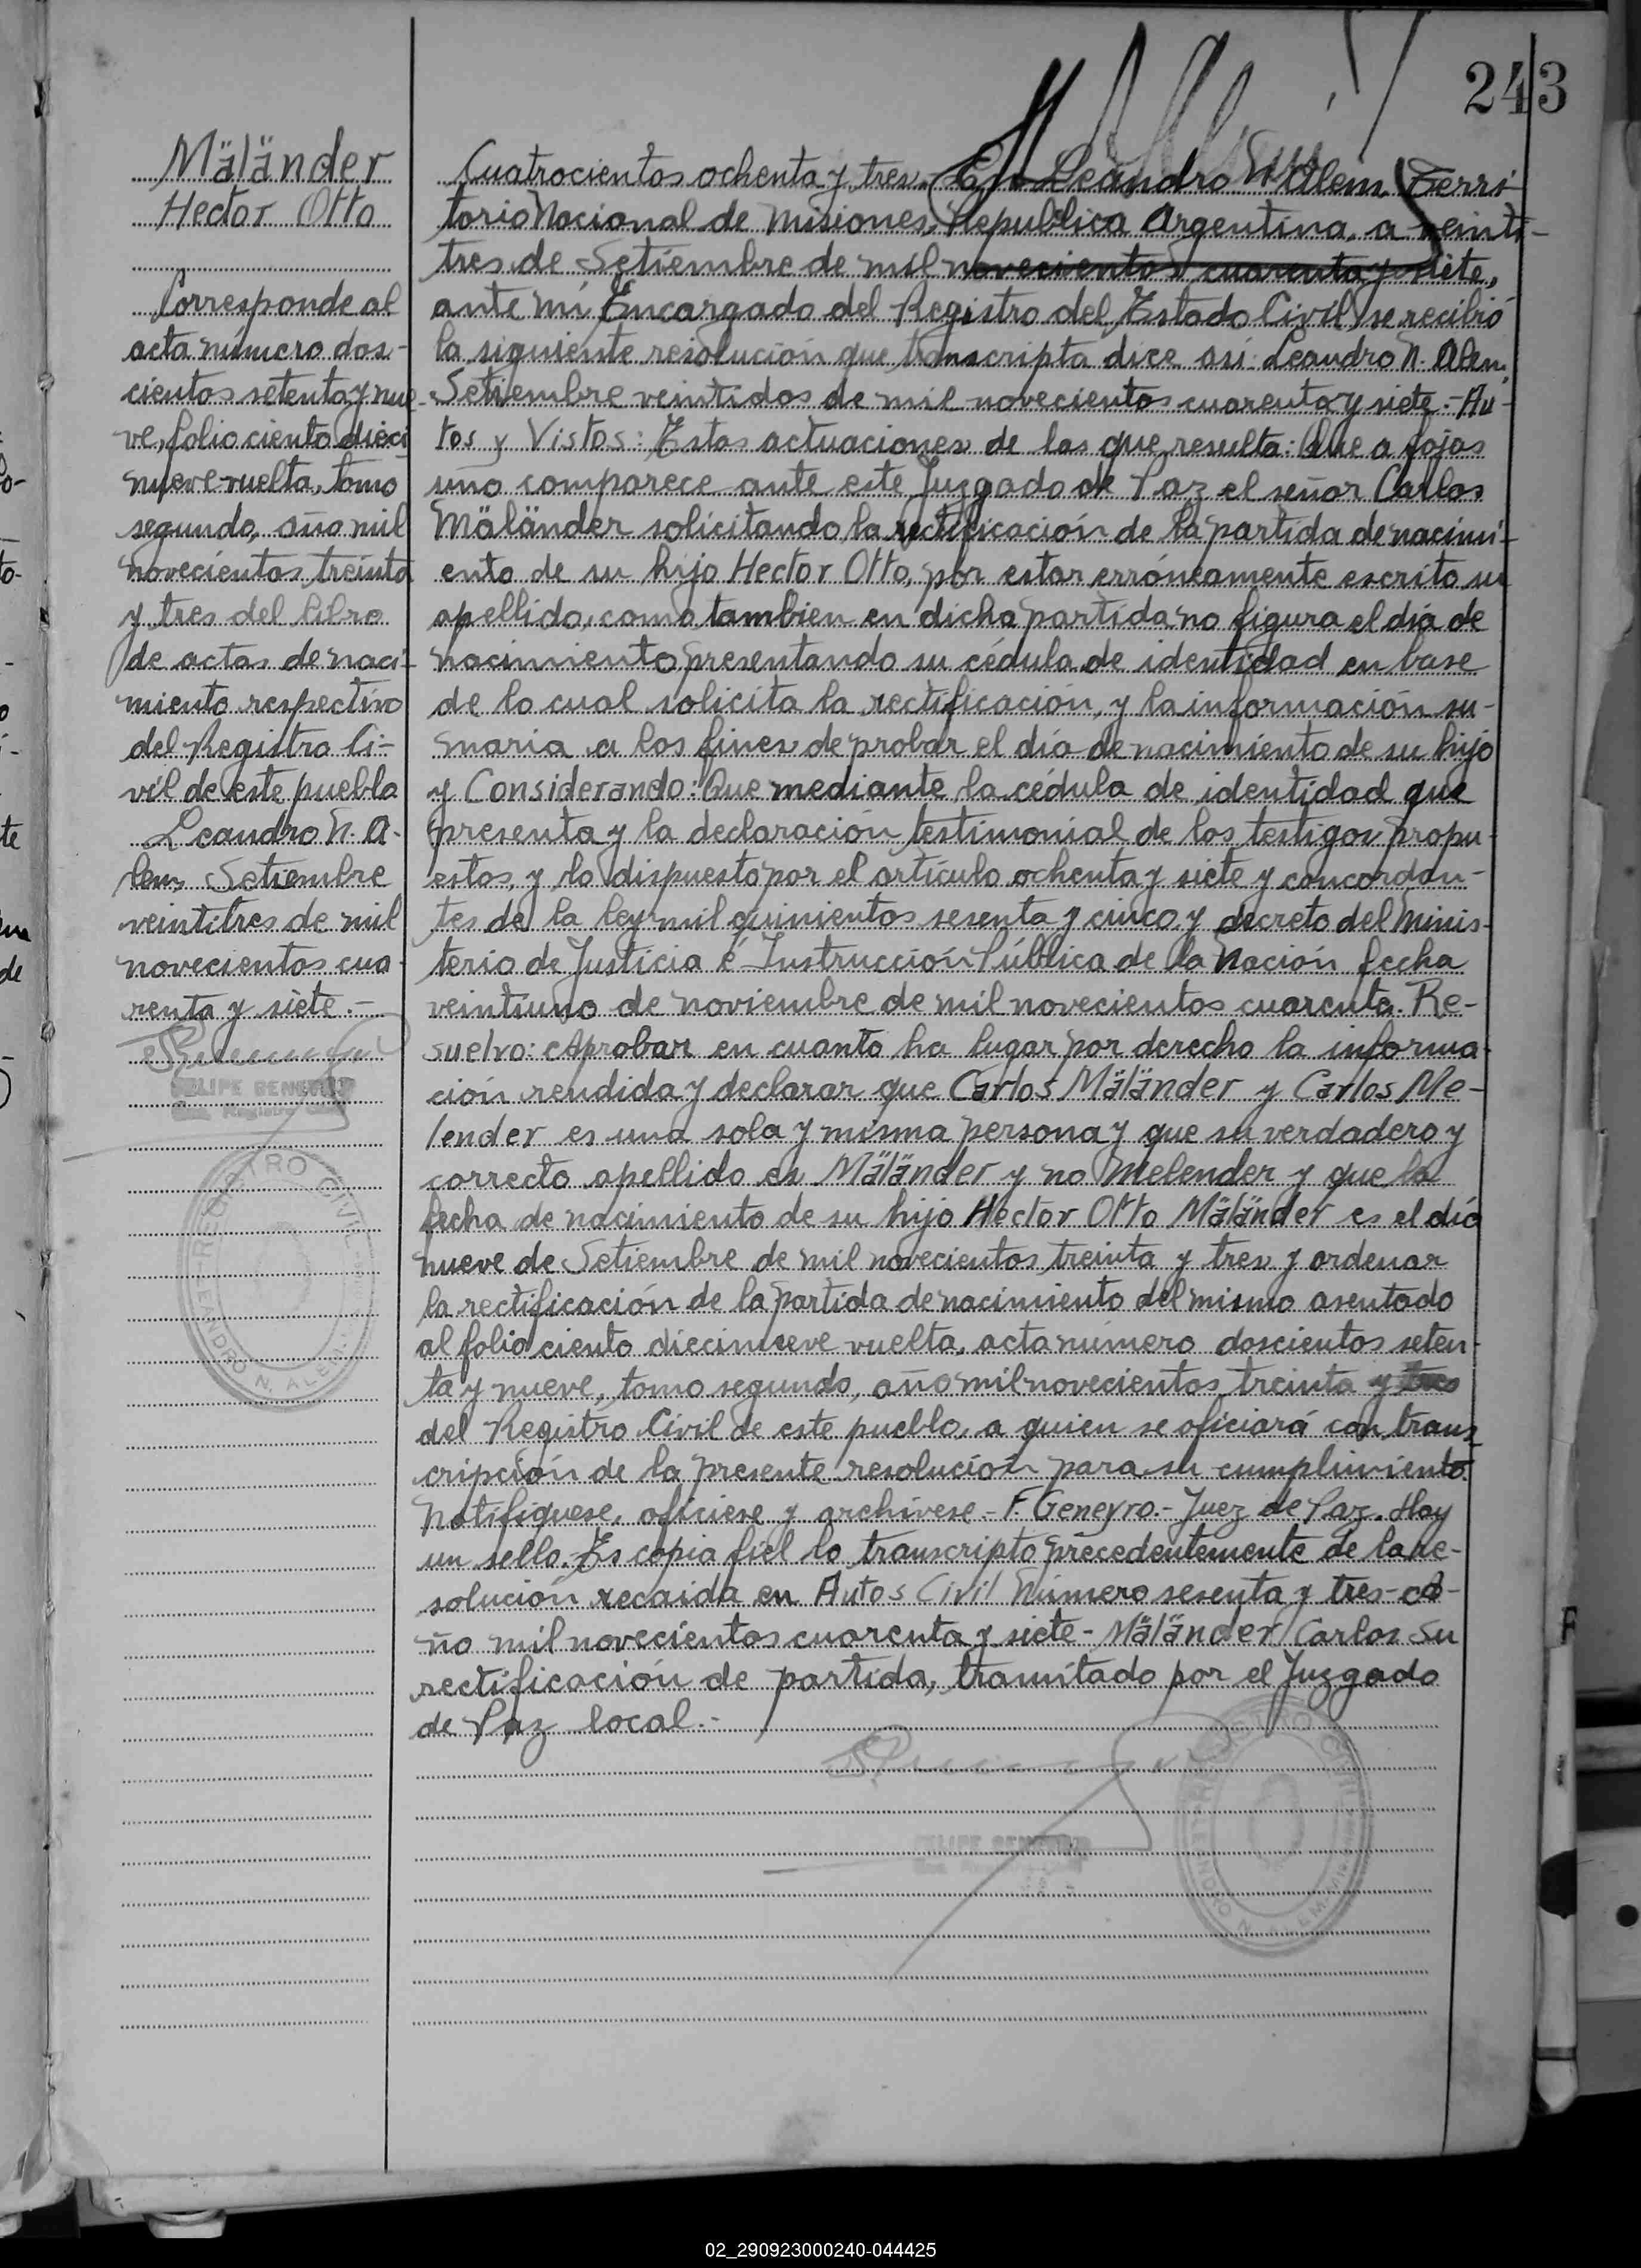 243
Mäländer
Hector Otto
Corresponde al
acta número dos-
cientos setenta y nue-
ve, folio ciento dieci
nueve vuelta, tomo
segundo, año mil
novecientos treinta
y tres del libro
de actas de naci-
miento respectivo
del Registro Ci-
vil de este pueblo
Leandro N. A-
lem, Setiembre
veintitres de mil
novecientos cua-
renta y siete.-
FELIPE
REGISTRO CIVIL
LEANDRO N. ALEM
Cuatrocientos ochenta y tres. En Leandro N. Alem, Terri-
torio Nacional de Misiones, República Argentina, a veinti-
tres de Setiembre de mil novecientos cuarenta y siete,
ante mí Encargado del Registro del Estado Civil se recibió
la siguiente resolución que transcripta dice así: Leandro N. Alem,
Setiembre veintidos de mil novecientos cuarenta y siete.- Au-
tos y Vistos: Estas actuaciones de las que resulta: Que a fojas
uno comparece ante este Juzgado de Paz el señor Carlos
Mäländer solicitando la rectificación de la partida de nacimi-
ento de su hijo Hector Otto, por estar erróneamente escrito su
apellido, como tambien en dicha partida no figura el día de
nacimiento presentando su cédula de identidad en base
de lo cual solicita la rectificación, y la información su-
maria a los fines de probar el día de nacimiento de su hijo
y Considerando: Que mediante la cédula de identidad que
presenta y la declaración testimonial de los testigos propu-
estos, y lo dispuesto por el artículo ochenta y siete y concordan-
tes de la ley mil quinientos sesenta y cinco y decreto del Minis-
terio de Justicia é Instrucción Pública de la Nación fecha
veintiuno de noviembre de mil novecientos cuarenta. Re-
suelvo: Aprobar en cuanto ha lugar por derecho la informa-
ción rendida y declarar que Carlos Mäländer y Carlos Me-
lender es una sola y misma persona y que su verdadero y
correcto apellido es Mäländer y no Melender y que la
fecha de nacimiento de su hijo Hector Otto Mäländer es el día
nueve de Setiembre de mil novecientos treinta y tres y ordenar
la rectificación de la partida de nacimiento del mismo asentado
al folio ciento diecinueve vuelta, acta número doscientos seten-
ta y nueve, tomo segundo, año mil novecientos treinta y tres
del Registro Civil de este pueblo, a quien se oficiará con trans-
cripción de la presente resolución para su cumplimiento.
Notifíquese, ofíciese y archívese - F. Geneyro.- Juez de Paz. Hay
un sello.- Es copia fiel lo transcripto precedentemente de la re-
solución recaida en Autos Civil Número sesenta y tres- a-
ño mil novecientos cuarenta y siete - Mäländer Carlos su
rectificación de partida, tramitado por el Juzgado
de Paz local.-
FELIPE
REGISTRO CIVIL
LEANDRO N. ALEM
02_290923000240-044425